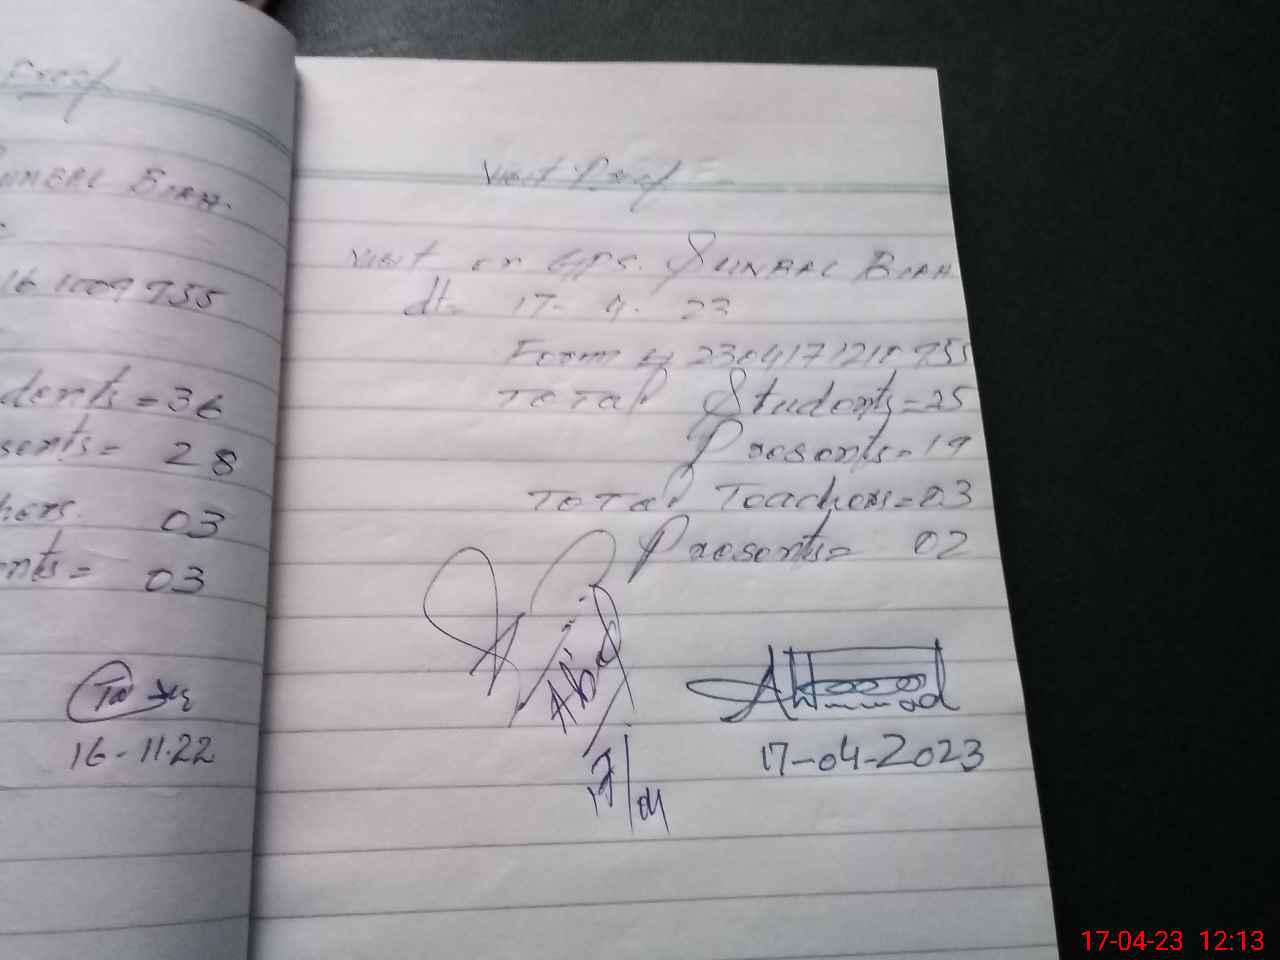 Proof
Sunbal Biah.
161009755
dents = 36
sents = 28
hers. 03
nts = 03
16-11-22
Visit Proof
Visit on GPS. Sunbal Biah
dt- 17- 4. 23
Form # 2304171210755
Total Students = 25
Presents = 19
Total Teachers = 03
Presents = 02
Abid
17/04
17-04-2023
17-04-23 12:13